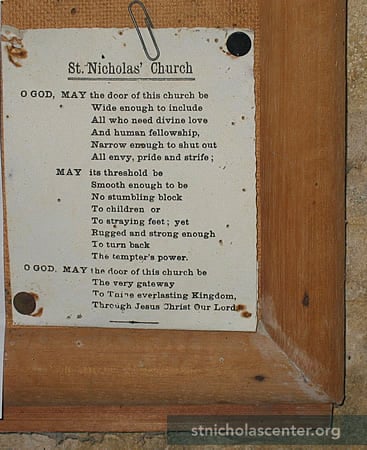 St. Nicholas' Church
O GOD, MAY the door of this church be
Wide enough to include
All who need divine love
And human fellowship,
Narrow enough to shut out
All envy, pride and strife;
MAY its threshold be
Smooth enough to be
No stumbling block
To children or
To straying feet; yet
Rugged and strong enough
To turn back
The tempter's power.
O GOD, MAY the door of this church be
The very gateway
To Thine everlasting Kingdom,
Through Jesus Christ Our Lord
stnicholascenter.org